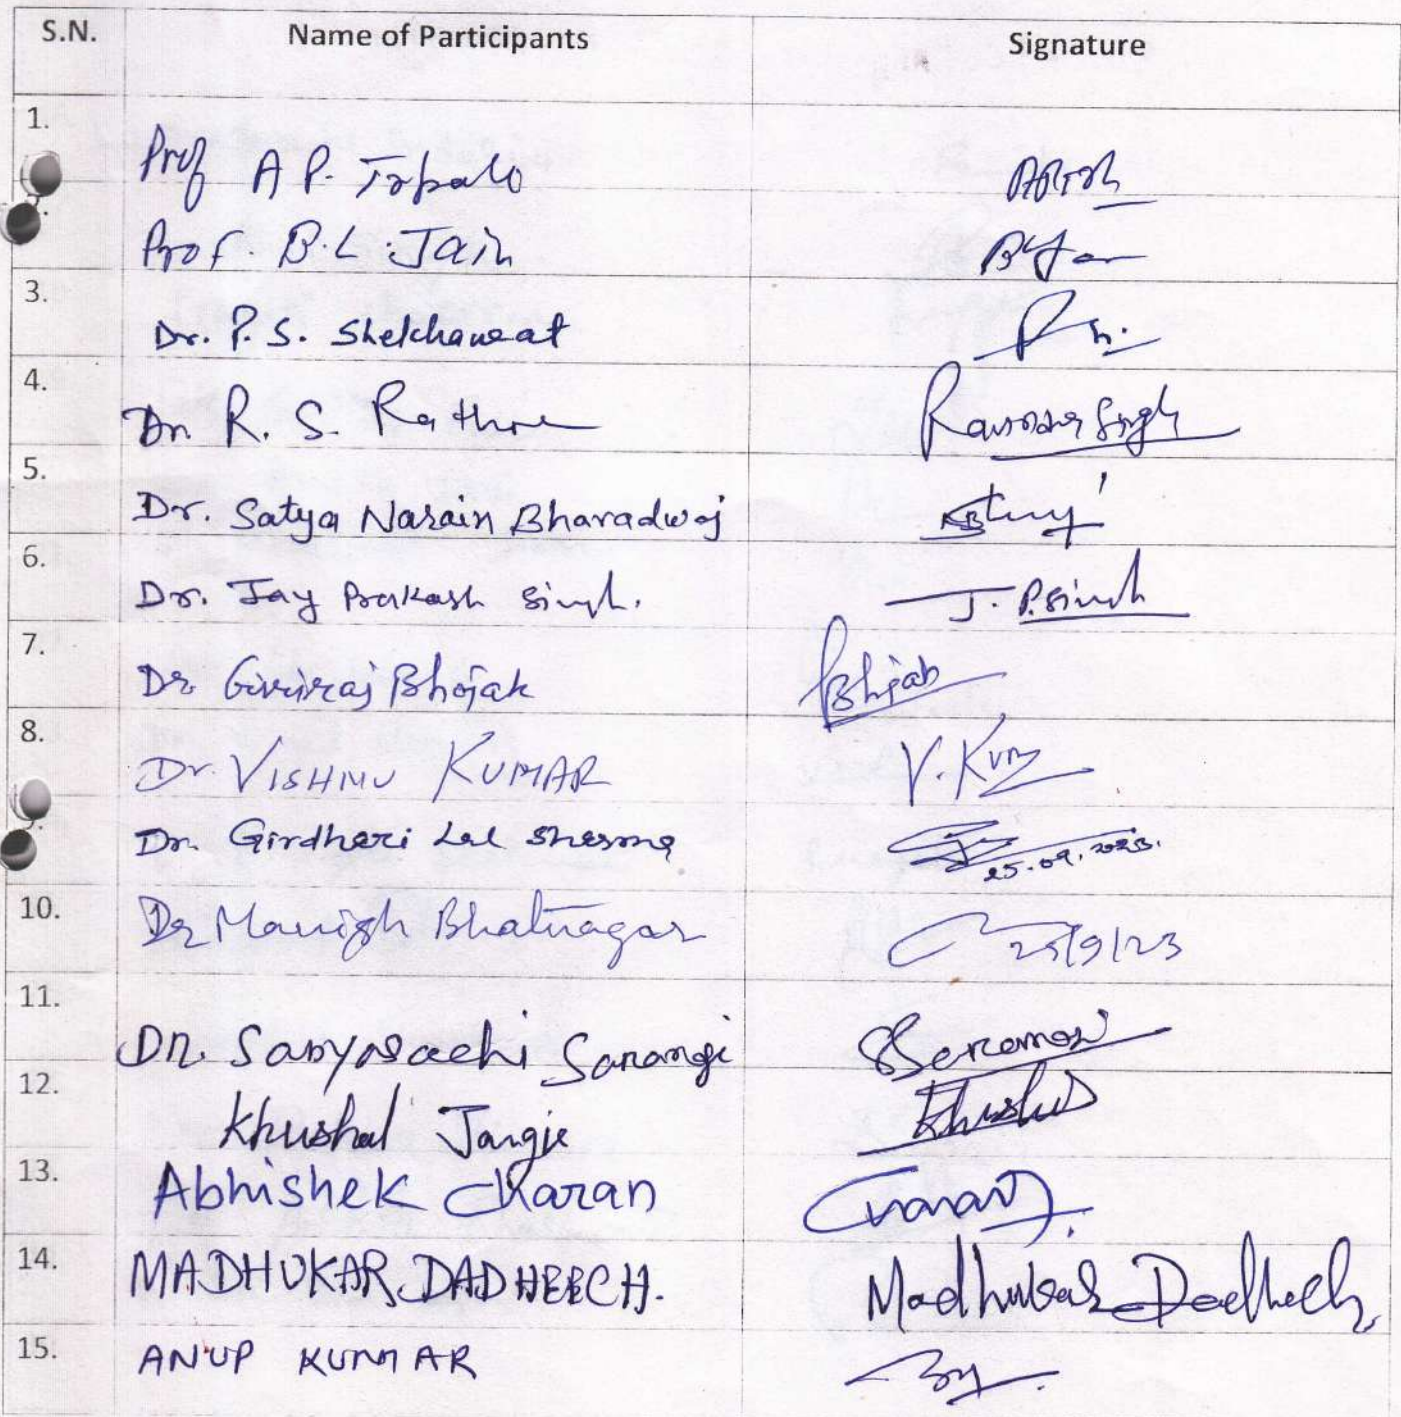 S.N. Name of Participants Signature
1. Prof A P. Tripathi
Prof. B.L. Jain
3. Dr. P. S. Shekhawat
4. Dr. R. S. Rathore
5. Dr. Satya Narain Bharadwaj
6. Dr. Jay Prakash Singh. J. P. Singh
7. Dr Giriraj Bhojak
8. Dr. VISHNU KUMAR V. Kum
Dr. Girdhari Lal Sharma 25.09.2023.
10. Dr Manish Bhatnagar 25/9/23
11. Dr. Sabyasachi Sarangi
12. Khushal Jangir
13. Abhishek Charan Charan
14. MADHUKAR DADHEECH. Madhukar Dadheech
15. ANUP KUMAR